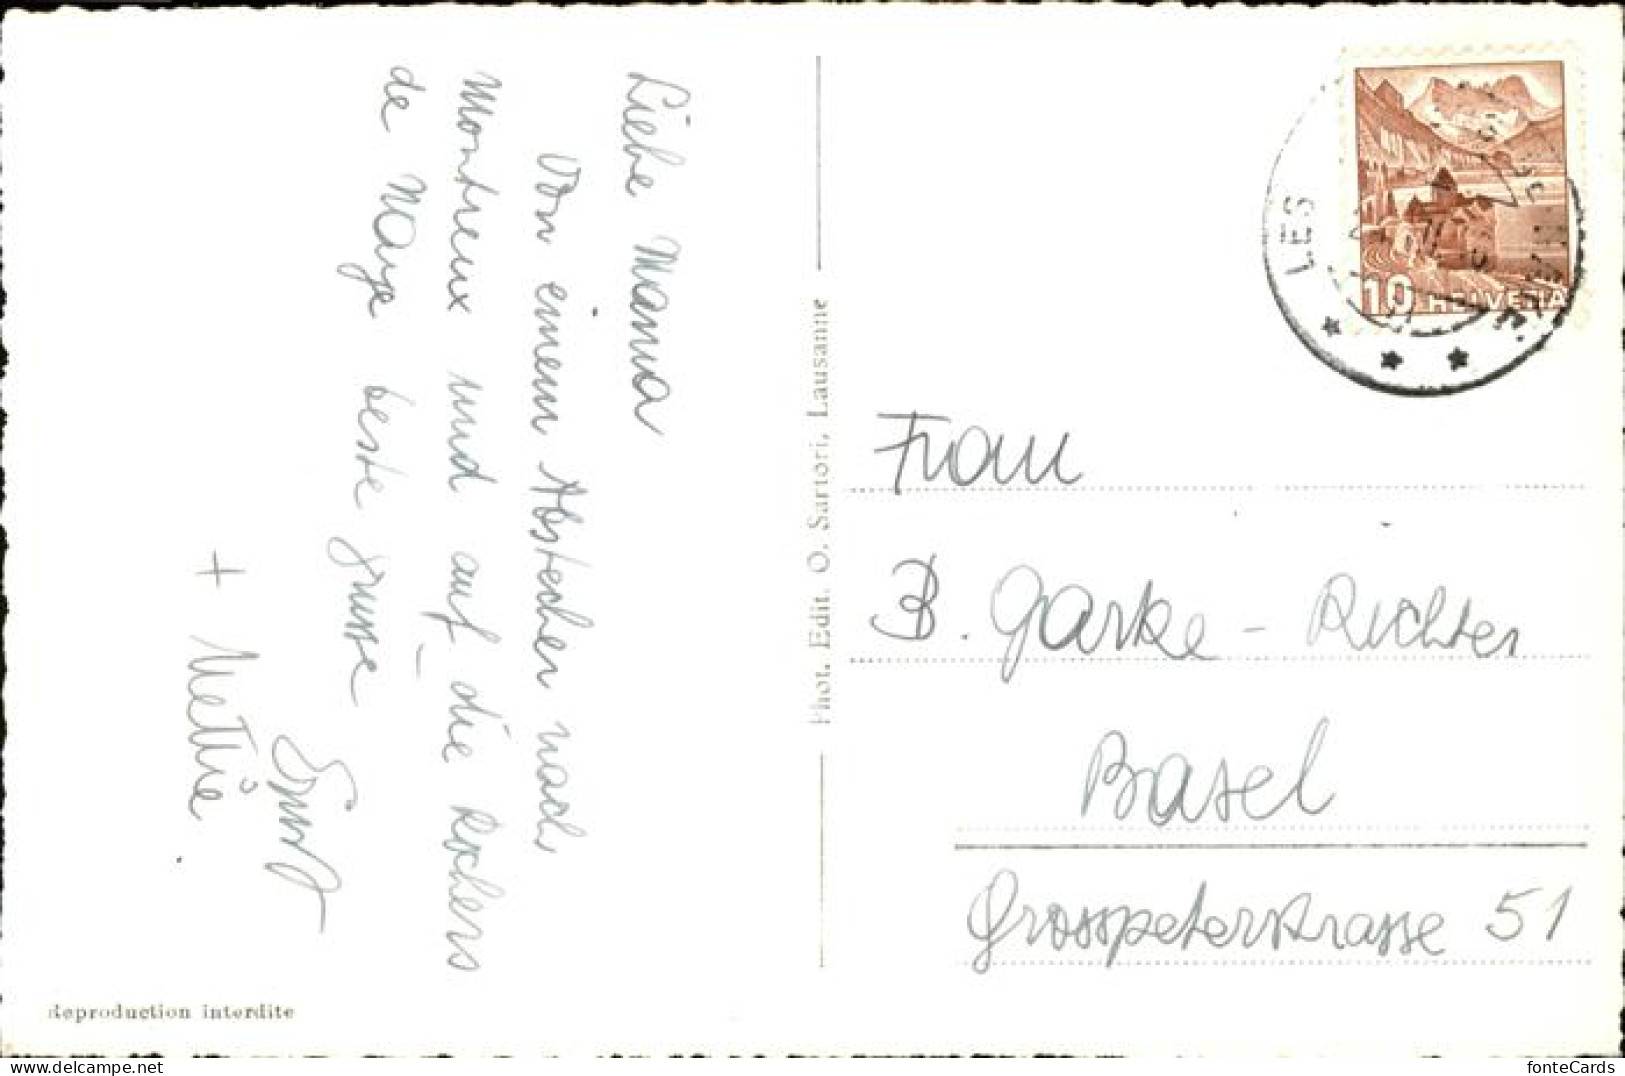 Liebe Mama
Von einem Abstecher nach
Montreux und auf die Rochers
de Naye beste grüsse
Ernst
+ Nettie
Phot. Edit. O. Sartori, Lausanne
Reproduction interdite
LES
10 HELVETIA
Frau
B. Garke - Richter
Basel
Grosspeterstrasse 51
delcampe.net
fonteCards